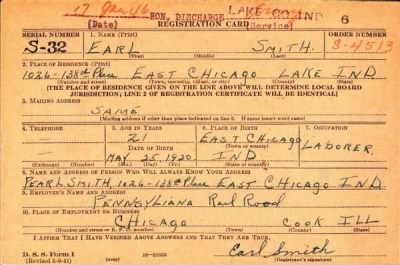 17 Jan 46 LAKE CO IND 6
(Date) HON. DISCHARGE (Service)
REGISTRATION CARD
SERIAL NUMBER 1. NAME (Print) ORDER NUMBER
S-32 EARL SMITH. S-4513
(First) (Middle) (Last)
2. PLACE OF RESIDENCE (Print)
1026-138th Place EAST CHICAGO LAKE IND.
(Number and street) (Town, township, village, or city) (County) (State)
[THE PLACE OF RESIDENCE GIVEN ON THE LINE ABOVE WILL DETERMINE LOCAL BOARD
JURISDICTION; LINE 2 OF REGISTRATION CERTIFICATE WILL BE IDENTICAL]
3. MAILING ADDRESS
SAME
[Mailing address if other than place indicated on line 2. If same insert word same]
4. TELEPHONE 5. AGE IN YEARS 6. PLACE OF BIRTH 7. OCCUPATION
21 EAST CHICAGO LABORER.
DATE OF BIRTH (Town or county)
MAY 25 1920. IND
(Exchange) (Number) (Mo.) (Day) (Yr.) (State or country)
8. NAME AND ADDRESS OF PERSON WHO WILL ALWAYS KNOW YOUR ADDRESS
PEARL SMITH, 1026-138th Place EAST CHICAGO IND.
9. EMPLOYER'S NAME AND ADDRESS
PENNSYLIANA Rail Rood
10. PLACE OF EMPLOYMENT OR BUSINESS
CHICAGO COOK ILL
(Number and street or R. F. D. number) (Town) (County) (State)
I AFFIRM THAT I HAVE VERIFIED ABOVE ANSWERS AND THAT THEY ARE TRUE.
D. S. S. Form 1 Earl Smith
(Revised 6-9-41) (Registrant's signature)